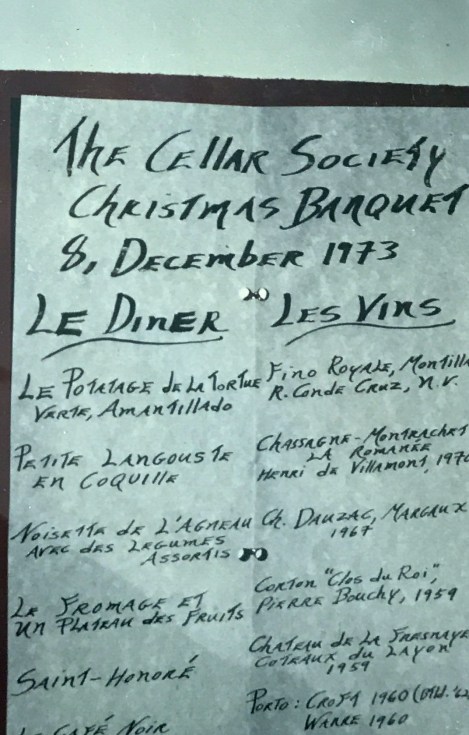 The Cellar Society
Christmas Banquet
8, December 1973
Le Diner
Le Potatage de la Tortue
Verte, Amantillado
Petite Langouste
en Coquille
Noisette de L'Agneau
avec des Legumes
Assortis
Le Fromage et
un Plateau des Fruits
Saint-Honoré
Le Café Noir
Les Vins
Fino Royale, Montilla
R. Conde Cruz, n.v.
Chassagne-Montrachet
La Romanee
Henri de Villamont, 1970
Ch. Dauzac, Margaux
1967
Corton "Clos du Roi",
Pierre Bouchy, 1959
Chateau de La Fresnaye
Coteaux du Layon
1959
Porto: Croft 1960 (Btld. '62
Warre 1960